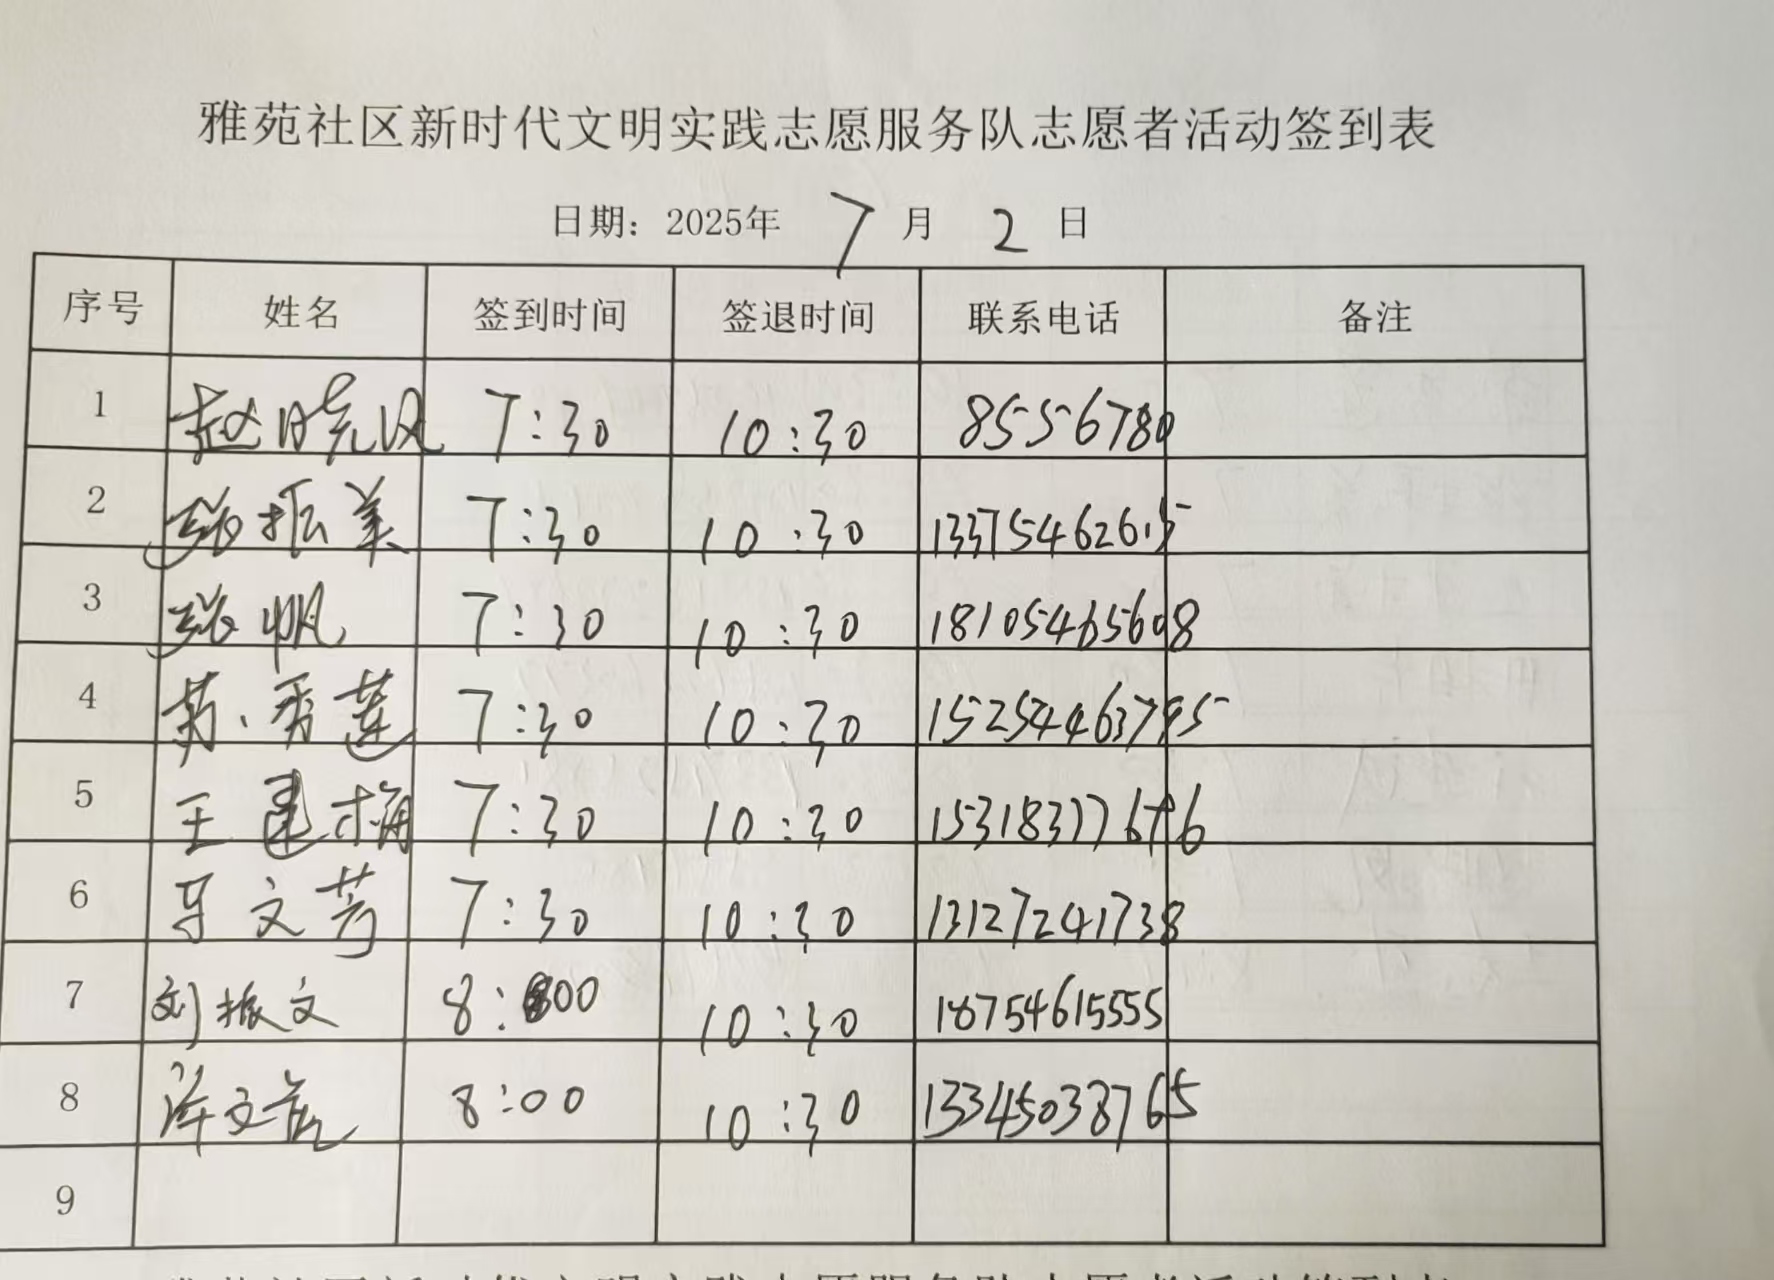 雅苑社区新时代文明实践志愿服务队志愿者活动签到表
日期：2025年 7 月 2 日
序号 姓名 签到时间 签退时间 联系电话 备注
1 赵晓风 7:30 10:30 85556780
2 张振美 7:30 10:30 13375462615
3 张帆 7:30 10:30 18105465608
4 秀莲 7:30 10:30 15254463795
5 王建梅 7:30 10:30
6 文芳 7:30 10:30 13127241738
7 刘振文 8:00 10:30 18754615555
8 文 8:00 10:30 13345038765
9
雅苑社区新时代文明实践志愿服务队志愿者活动签到表